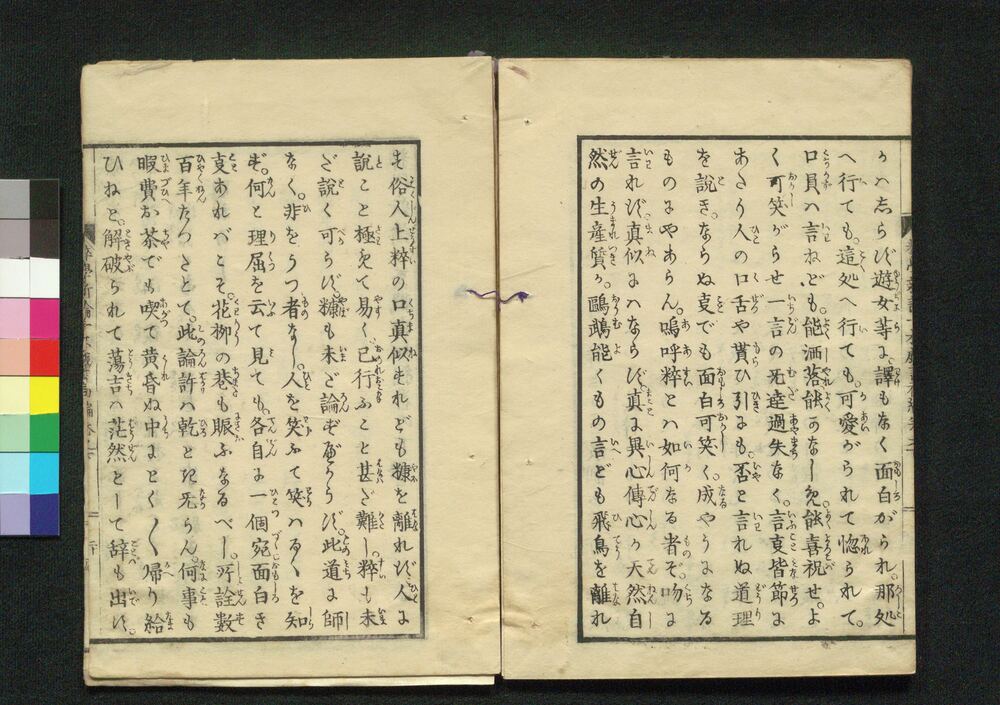 々ハ志らず遊女等に譯もなく面白がられ。那処
へ行ても。這処へ行ても。可愛がられて惚られて。
口員ハ言ねども。能洒落能のなし能喜祝せよ
く可笑がらせ一言の无过失なく。言支皆節に
あたり人の口舌や貰ひ引にも。否と言れぬ道理
を説き。ならぬ支でも面白可笑く。成やうになる
ものにやあらん。嗚呼粋とハ如何なる者ぞ。吻に
言れず真似にならず真に異心傳心の天然自
然の生産質か。鸚鵡能くもの言ども飛鳥を離れ
ず俗人上粹の口真似すれども糠を離れず人に
説こと極めて易く。己行ふこと甚だ難し。粹も未
ざ説く可らず。糠も未だ論ずべからず。此道に師
なく。非をうつ者なし。人を笑ふて笑ハるゝを知
ず。何と理屈を云て見ても。各自に一個宛面白き
支あればこそ。花柳の巷も賑ふなるべし。所詮數
百年たつたとて。此論許ハ乾と无らん。何事も
暇費お茶でも喫て黄昏ぬ中にとくく帰り給
ひねと。解破られて蕩吉ハ茫然として辞も出ず。